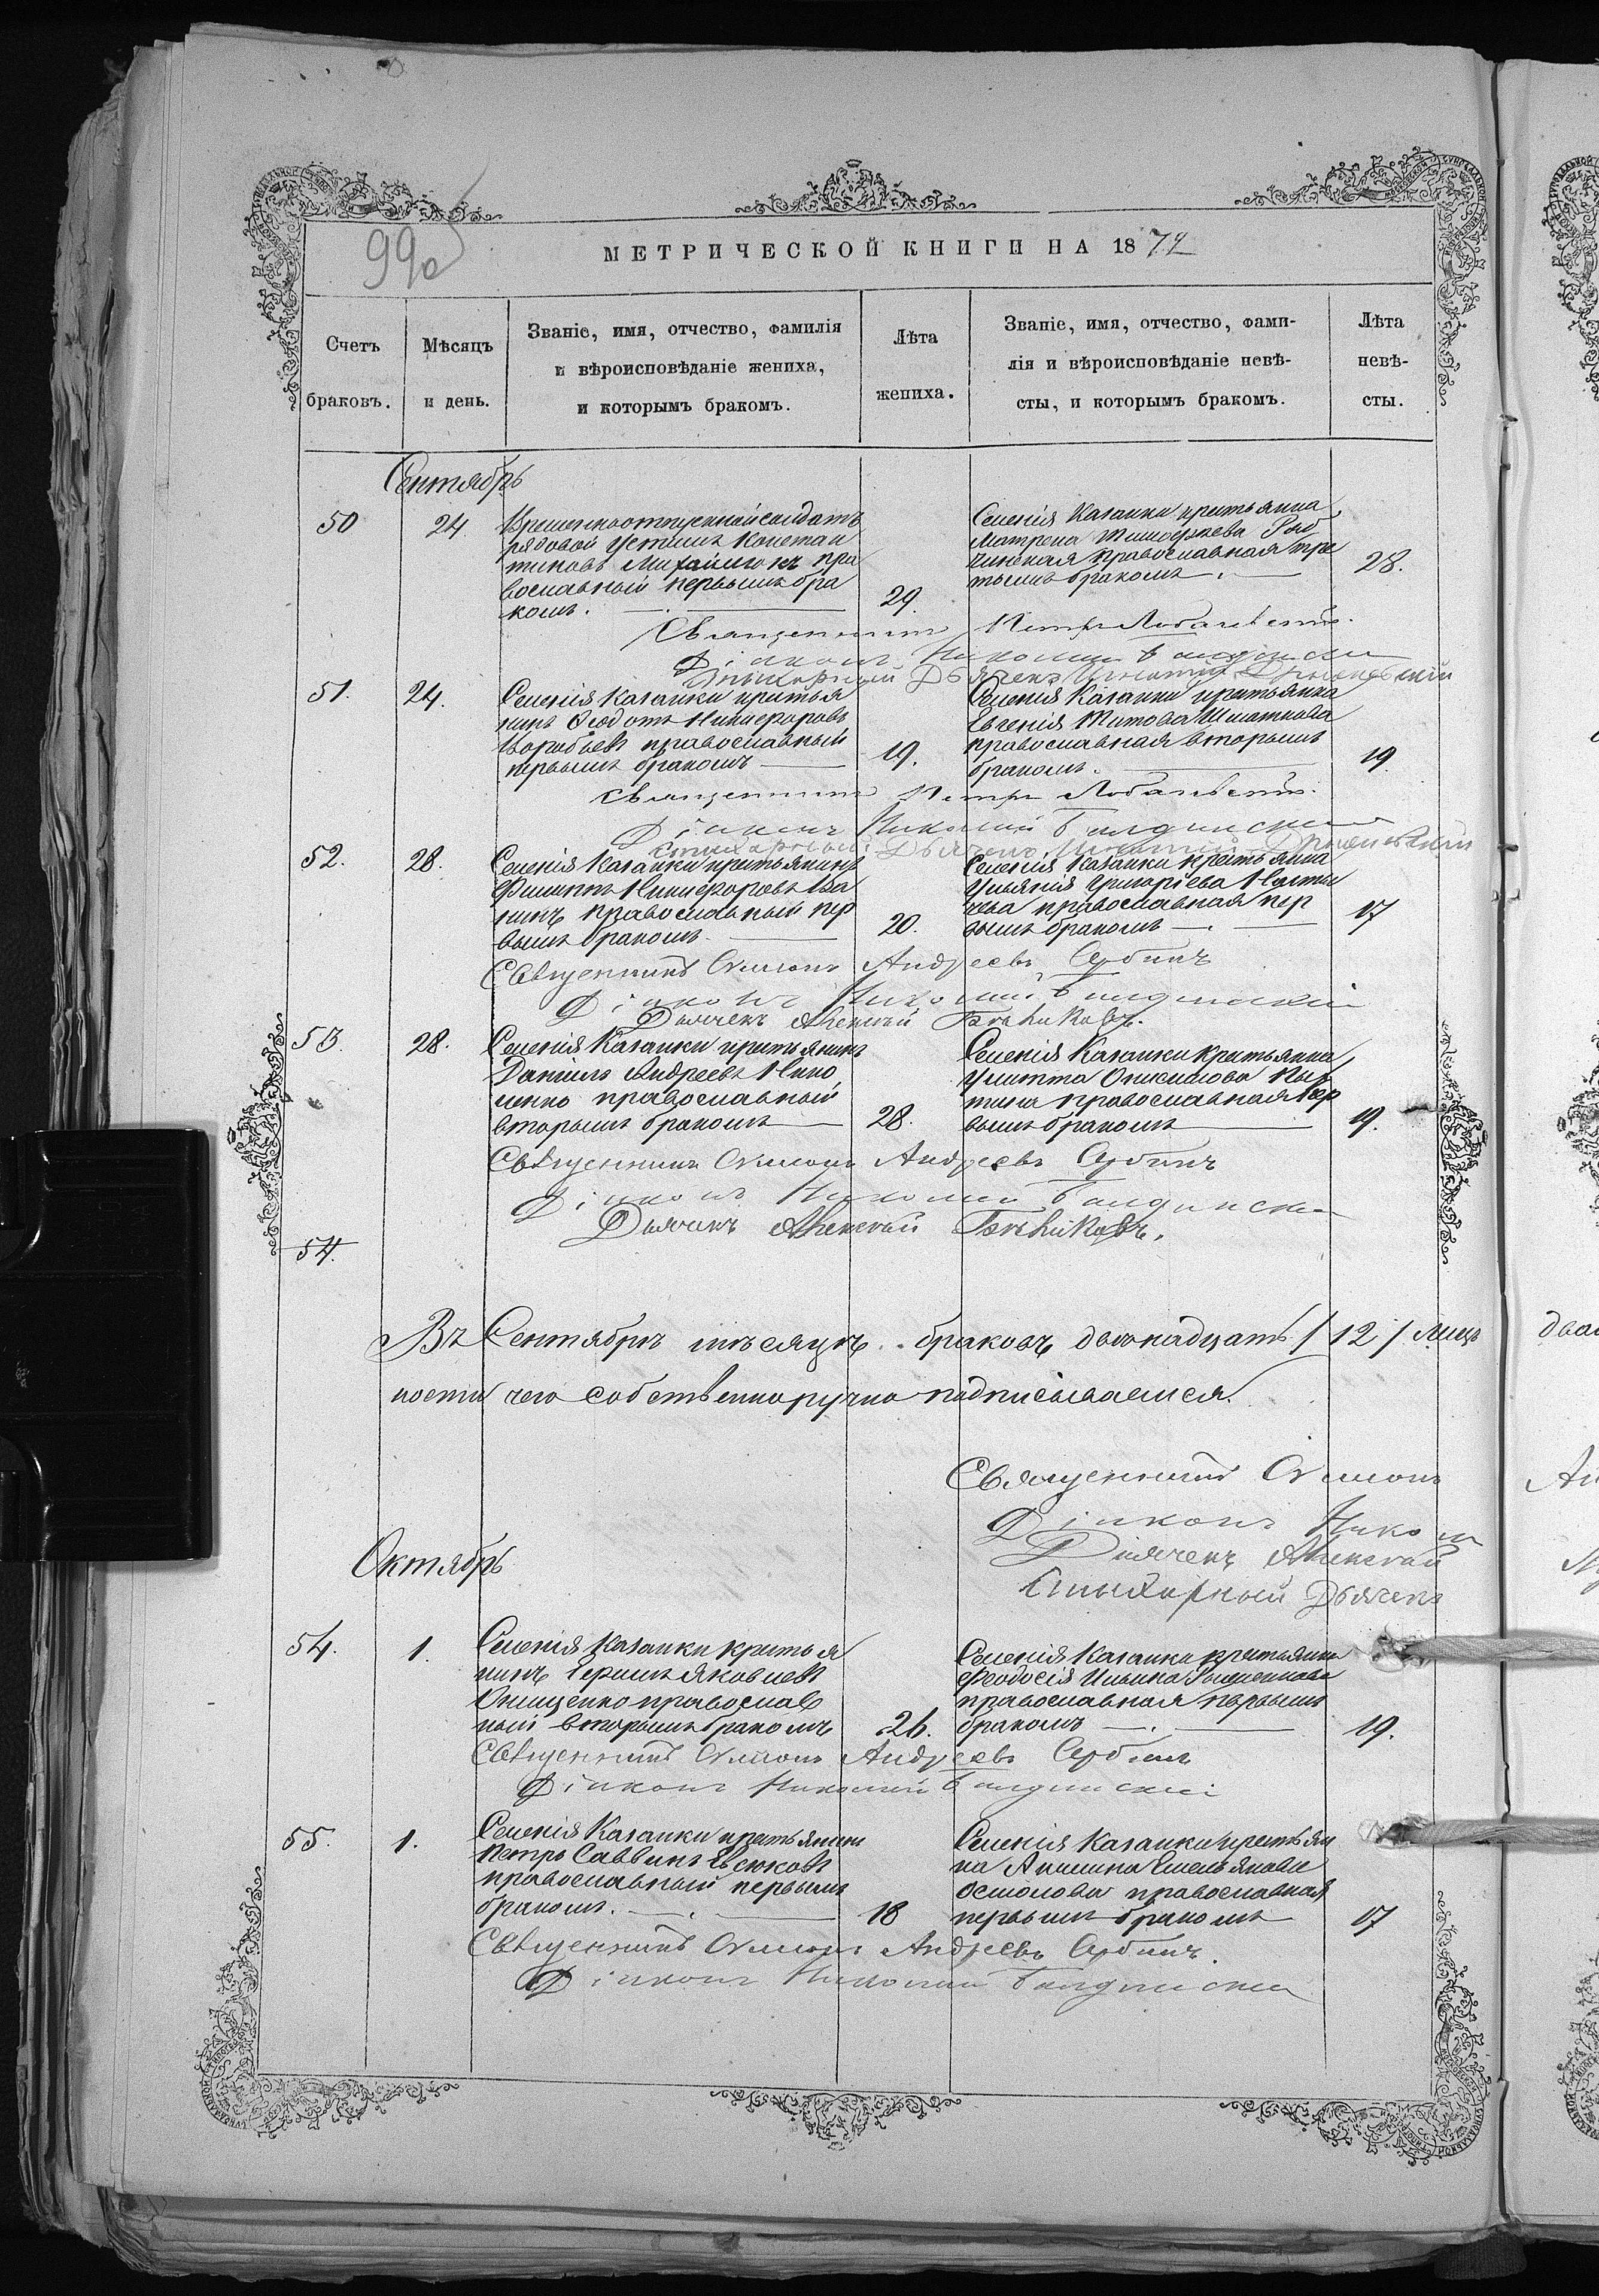 990
МЕТРИЧЕСКОЙ КНИГИ НА 1872
Счетъ браковъ.
Мѣсяцъ и день.
Званіе, имя, отчество, фамилія
и вѣроисповѣданіе жениха,
и которымъ бракомъ.
Лѣта жениха.
Званіе, имя, отчество, фами-
лія и вѣроисповѣданіе невѣ-
сты, и которымъ бракомъ.
Лѣта невѣ-
сты.
Сентябрь
50 24
Временноотпускной солдатъ
рядовой Устинъ Констан
тиновъ Михайлюкъ пра
вославный первымъ бра
комъ.
29.
Селенія Казанки крестьянка
Матрена Тимофеева
православная тре
тьимъ бракомъ.
28.
Священникъ Петръ Лобачевскій.
Діаконъ Николай
Стихарный Дьячекъ Игнатій
51. 24.
Селенія Казанки крестья
нинъ Федотъ Никифоровъ
Воробьевъ православный
первымъ бракомъ
19.
Селенія Казанки крестьянка
Евгенія Титова Шматкова
православная вторымъ
бракомъ.
19
Священникъ Петръ Лобачевскій.
Діаконъ Николай
Стихарный Дьячекъ Игнатій
52. 28.
Селенія Казанки крестьянинъ
Филиппъ Никифоровъ Ва
нинъ православный пер
вымъ бракомъ.
20.
Селенія Казанки крестьянка
Ульянія Григоріева
православная пер
вымъ бракомъ
17
Священникъ Симонъ Андреевъ Сербинъ
Діаконъ Николай
Дьячекъ Алексей
53. 28.
Селенія Казанки крестьянинъ
Даніилъ Андреевъ Нико
ленко православный
вторымъ бракомъ
28.
Селенія Казанки крестьянка
Улитта Онисимова
православная пер
вымъ бракомъ
19.
Священникъ Симонъ Андреевъ Сербинъ
Діаконъ Николай
Дьячекъ Алексей
54.
Въ Сентябрѣ мѣсяцѣ браковъ двенадцать /12/
чего собственноручно подписываемся.
Священникъ Симонъ
Діаконъ Никол
Дьячекъ Алексей
Стихарный Дьячекъ
Октябрь
54. 1.
Селенія Казанки крестья
нинъ Яковлевъ
Онищенко православ
ный вторымъ бракомъ
26.
Селенія Казанки крестьянка
Феодосія Ильина
православная первымъ
бракомъ
19.
Священникъ Симонъ Андреевъ Сербинъ
Діаконъ Николай
55. 1.
Селенія Казанки крестьянинъ
Петръ Саввинъ Евсюковъ
православный первымъ
бракомъ.
18
Селенія Казанки крестьян
ка Акилина Емельянова
Осмолова православная
первымъ бракомъ
17
Священникъ Симонъ Андреевъ Сербинъ.
Діаконъ Николай